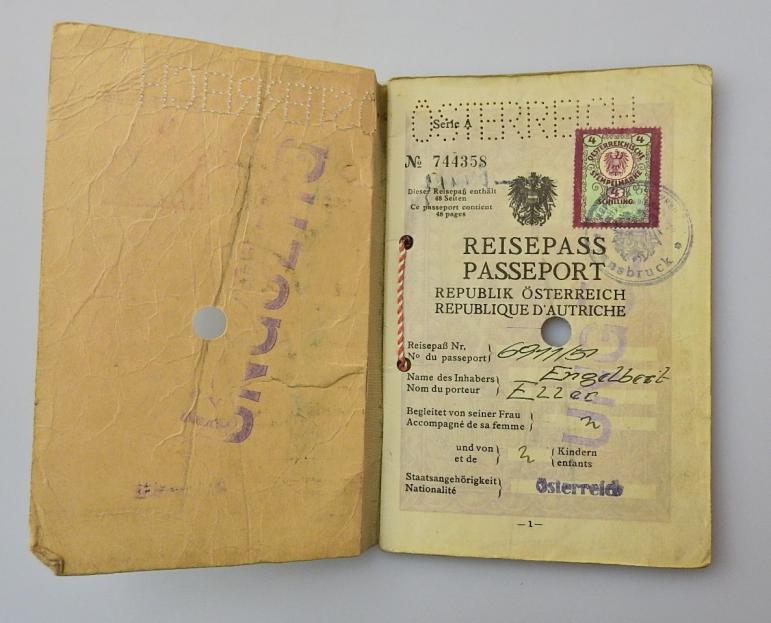 UNGÜLTIG
ÖSTERREICH
Serie A
№ 744358
Dieser Reisepaß enthält
48 Seiten
Ce passeport contient
48 pages
4 4
ÖSTERREICHISCHE
STEMPELMARKE
4
SCHILLING
Innsbruck
REISEPASS
PASSEPORT
REPUBLIK ÖSTERREICH
REPUBLIQUE D'AUTRICHE
Reisepaß Nr. 6911/51
No du passeport
Name des Inhabers Engelbert
Nom du porteur Eller
Begleitet von seiner Frau
Accompagné de sa femme
und von Kindern
et de enfants
Staatsangehörigkeit Österreich
Nationalité
—1—